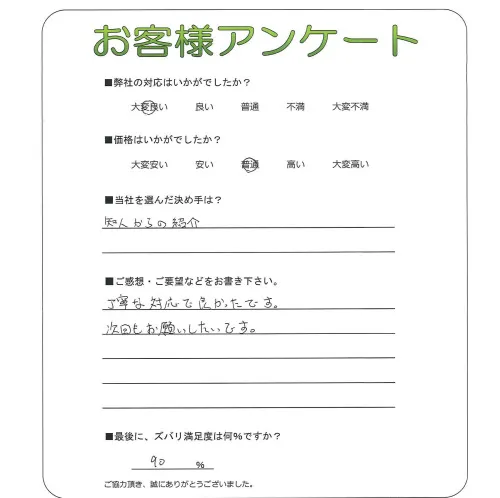 お客様アンケート
■弊社の対応はいかがでしたか？
大変良い 良い 普通 不満 大変不満
■価格はいかがでしたか？
大変安い 安い 普通 高い 大変高い
■当社を選んだ決め手は？
知人からの紹介
■ご感想・ご要望などをお書き下さい。
丁寧な対応で良かったです。
次回もお願いしたいです。
■最後に、ズバリ満足度は何%ですか？
90 %
ご協力頂き、誠にありがとうございました。